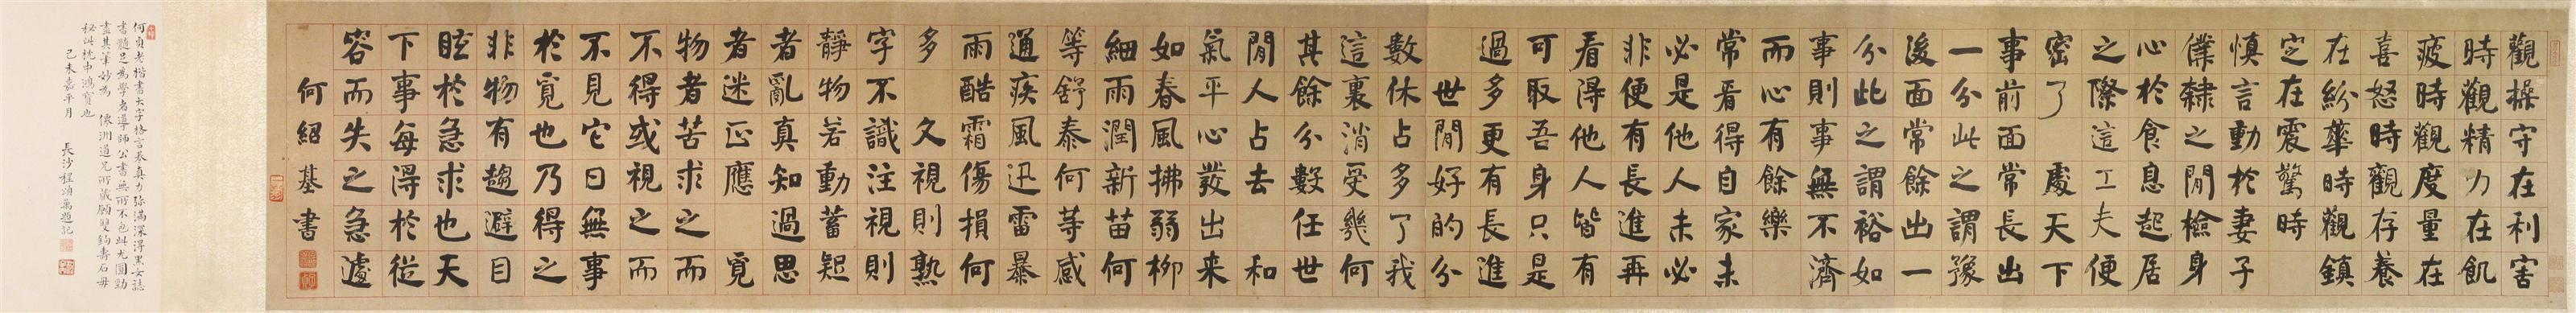 觀操守在利害
時觀精力在飢
疲時觀度量在
喜怒時觀存養
在紛華時觀鎮
定在震驚時
慎言動於妻子
僕隸之閒檢身
心於食息起居
之際這工夫便
密了 處天下
事前面常長出
一分此之謂豫
後面常餘出一
分此之謂裕如
事則事無不濟
而心有餘樂
常看得自家未
必是他人未必
非便有長進再
看得他人皆有
可取吾身只是
過多更有長進
世閒好的分
數休占多了我
這裏消受幾何
其餘分數任世
閒人占去 和
氣平心發出来
如春風拂弱柳
細雨潤新苗何
等舒泰何等感
通疾風迅雷暴
雨酷霜傷損何
多 文視則熟
字不識注視則
靜物若動蓄疑
者亂真知過思
者迷正應 覓
物者苦求之而
不得或視之而
不見它日無事
於覓也乃得之
非物有趨避目
眩於急求也天
下事每得於從
容而失之急遽
何紹基書
何貞老楷書大字格言卷真力弥滿深得黑女誌
書髓足為學者導師公書無所不包此尤圓勁
盡其筆妙為 洲道兄所藏願雙鉤壽石毋
秘此枕中鴻寶也
己未嘉平月 長沙程頌萬題記